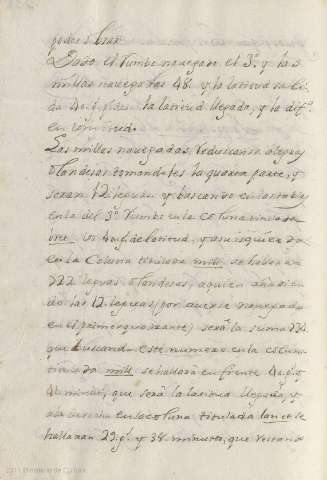 podas obrar
Dado el Rumbo navegado el 3º y las
millas navegadas 48 y la latitud sali
da 40 g.s la latitud llegada, y la dif.ª
en longitud.
Las millas navegadas reduscanse a leguas
olandesas tomandoles la quarta parte, y
seran 12 leguas y buscando en la tabla
en la del 3º Rumbo en la coluna titulada
40 g. de latitud, y a su isquierda
en la Coluna titulada mill. se hallaran
722 leguas olandesas, a quien añadien
do las 12 leguas, por averse navegado
en el primer quadrante, será la suma 734
que buscando este numero en la coluna
titulada mill. se hallará en frente 40 g.s y
41 minut.s que será la latitud llegada, y
a la derecha en la coluna titulada
hallaran 29 g.s y 38 minutos, que restando
2011 Ministerio de Cultura